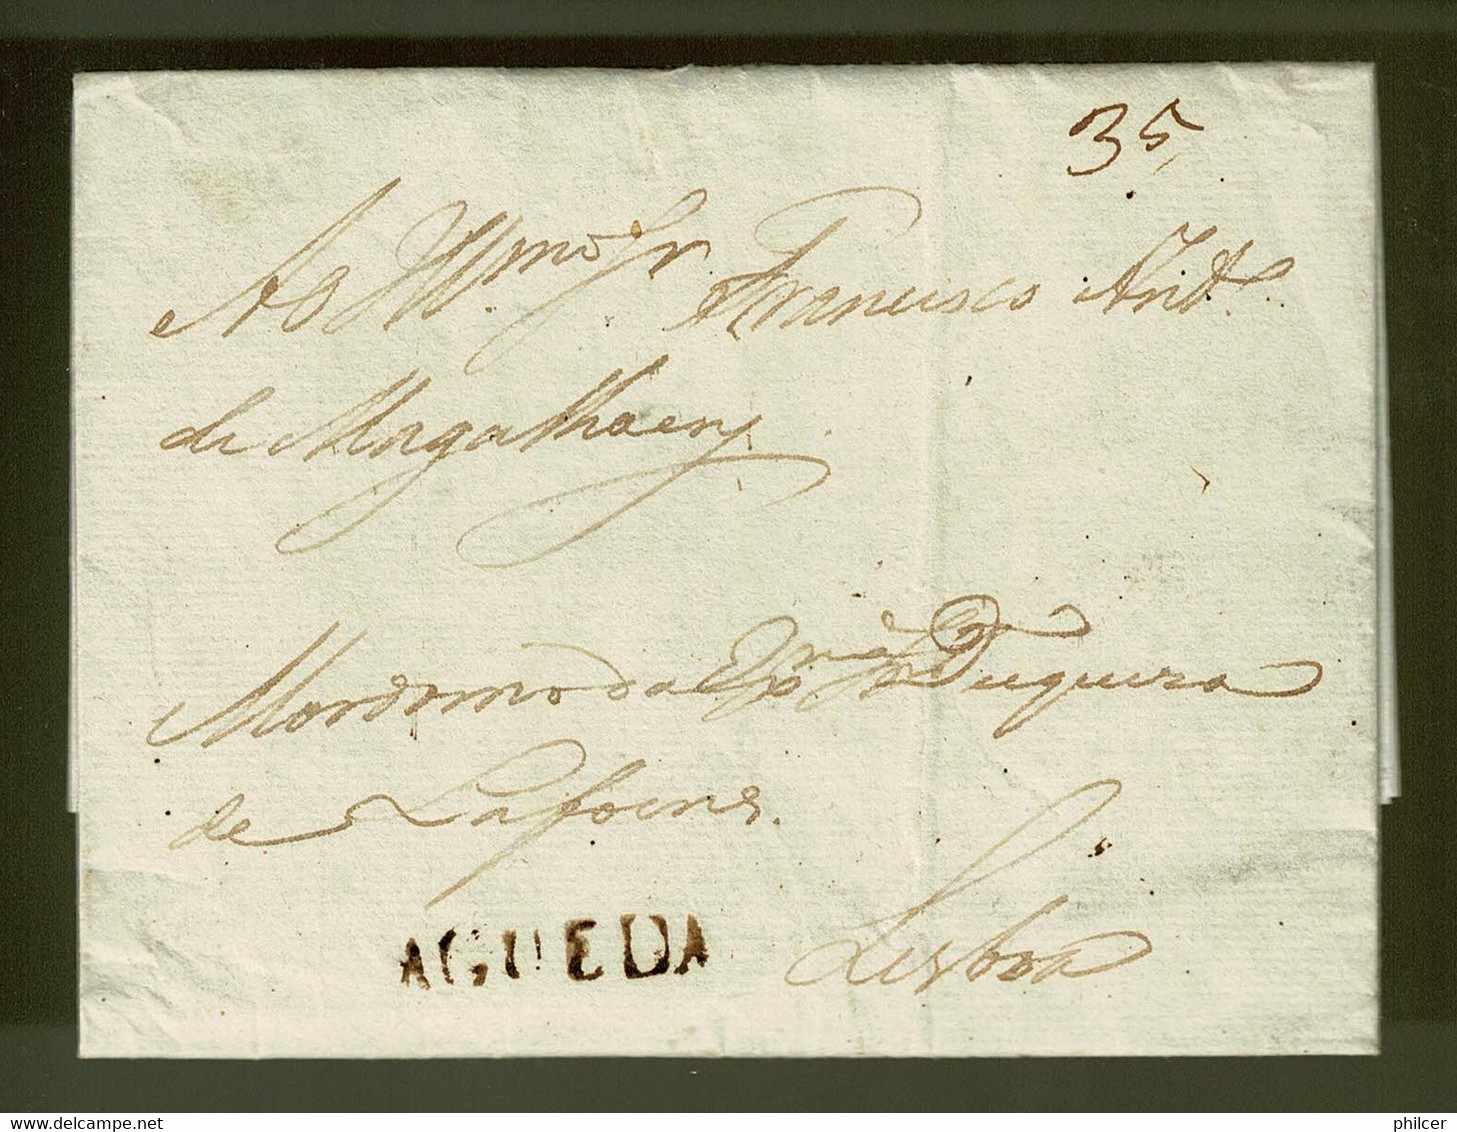 35
Ao Illmo Sr. Francisco Anto
de Magalhaens
Mordomo da Exma Sra Duqueza
de Lafoens.
AGUEDA
Lisboa
www.delcampe.net
philcer